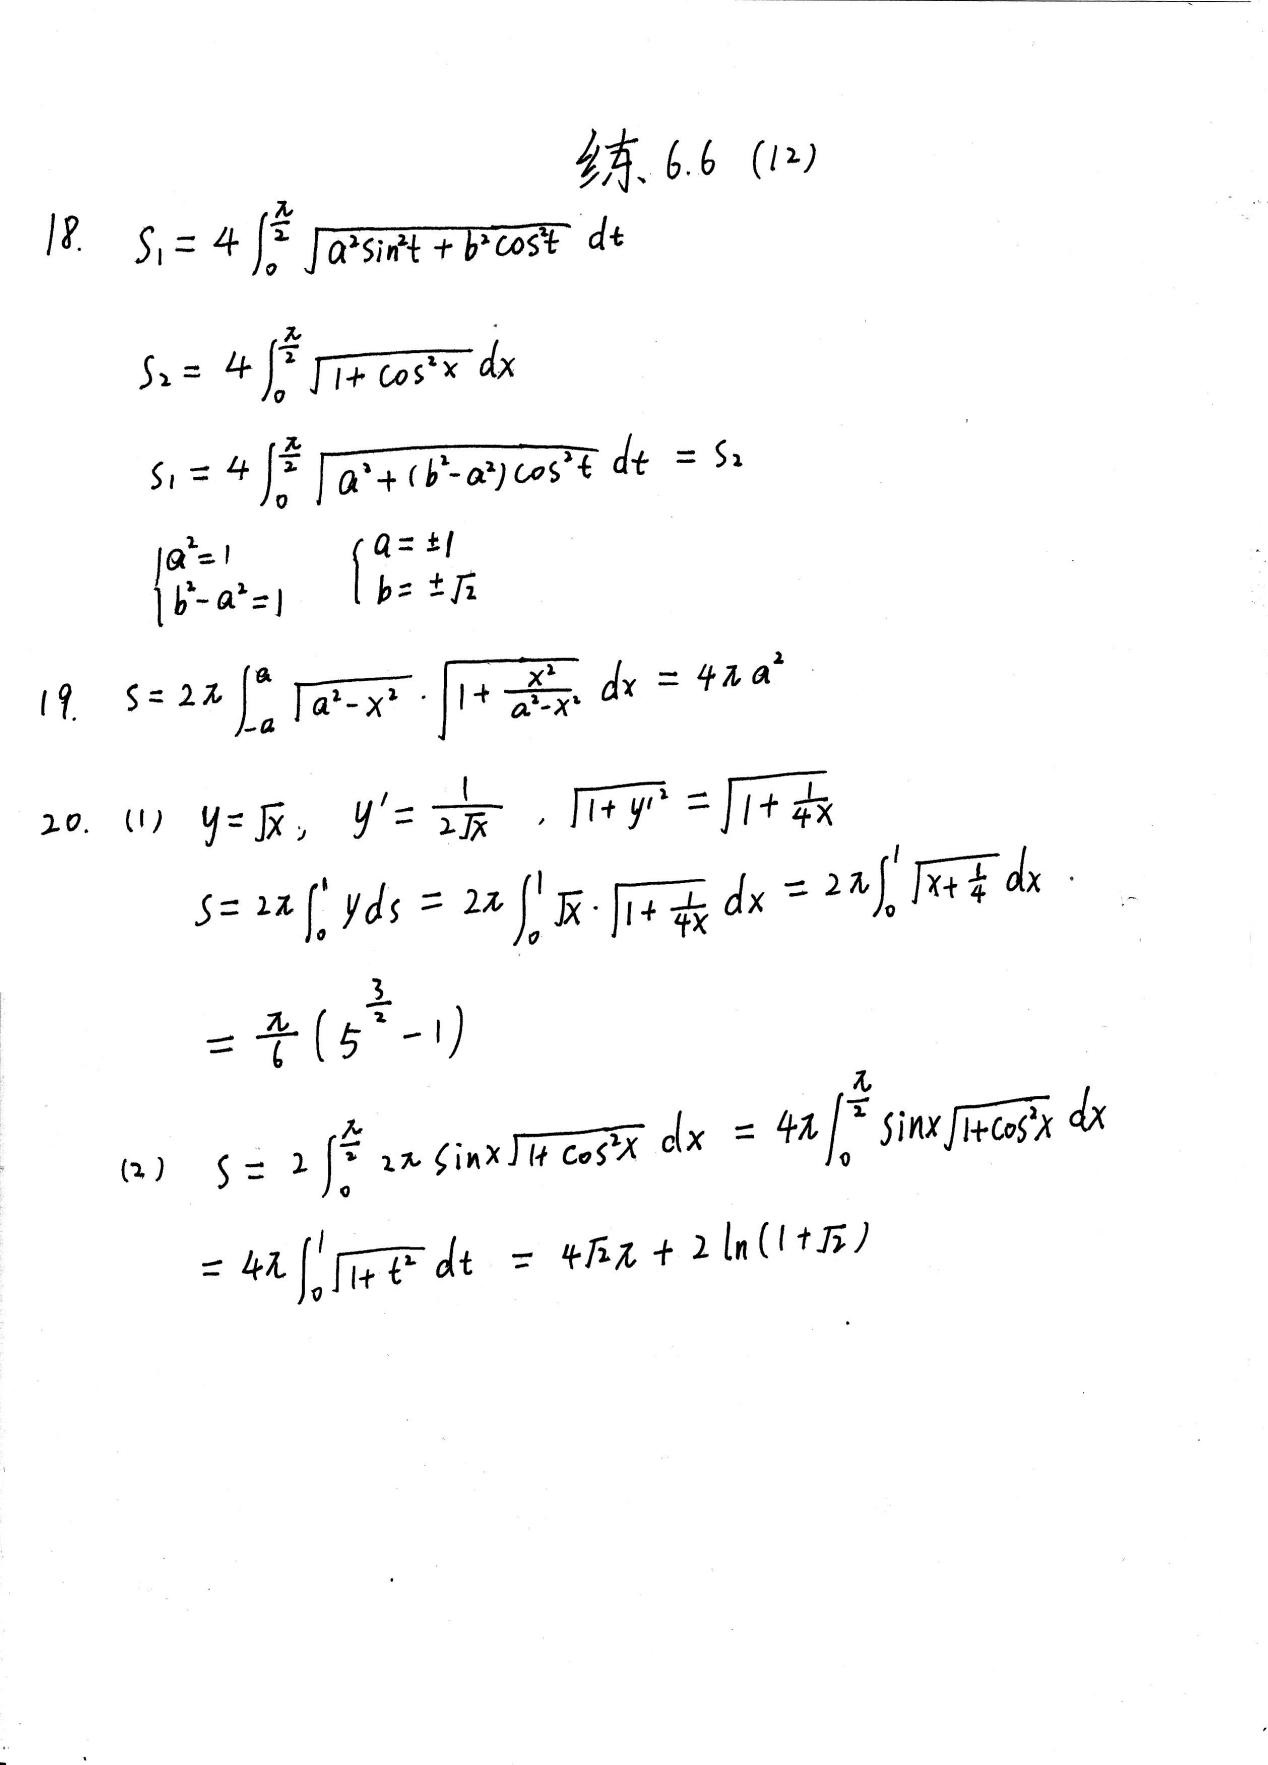 练 6.6 (12)
18. S₁ = 4 ∫₀^{π/2} √(a²sin²t + b²cos²t) dt
S₂ = 4 ∫₀^{π/2} √(1 + cos²x) dx
S₁ = 4 ∫₀^{π/2} √(a² + (b² - a²)cos²t) dt = S₂
{a² = 1 {a = ±1
{b² - a² = 1 {b = ±√2
19. S = 2π ∫_{-a}^{a} √(a² - x²) · √(1 + x²/(a² - x²)) dx = 4πa²
20. (1) y = √x, y' = 1/(2√x), √(1 + y'²) = √(1 + 1/(4x))
S = 2π ∫₀¹ y ds = 2π ∫₀¹ √x · √(1 + 1/(4x)) dx = 2π ∫₀¹ √(x + 1/4) dx.
= π/6 (5^{3/2} - 1)
(2) S = 2 ∫₀^{π/2} 2π sinx √(1 + cos²x) dx = 4π ∫₀^{π/2} sinx √(1 + cos²x) dx
= 4π ∫₀¹ √(1 + t²) dt = 4√2π + 2 ln(1 + √2)